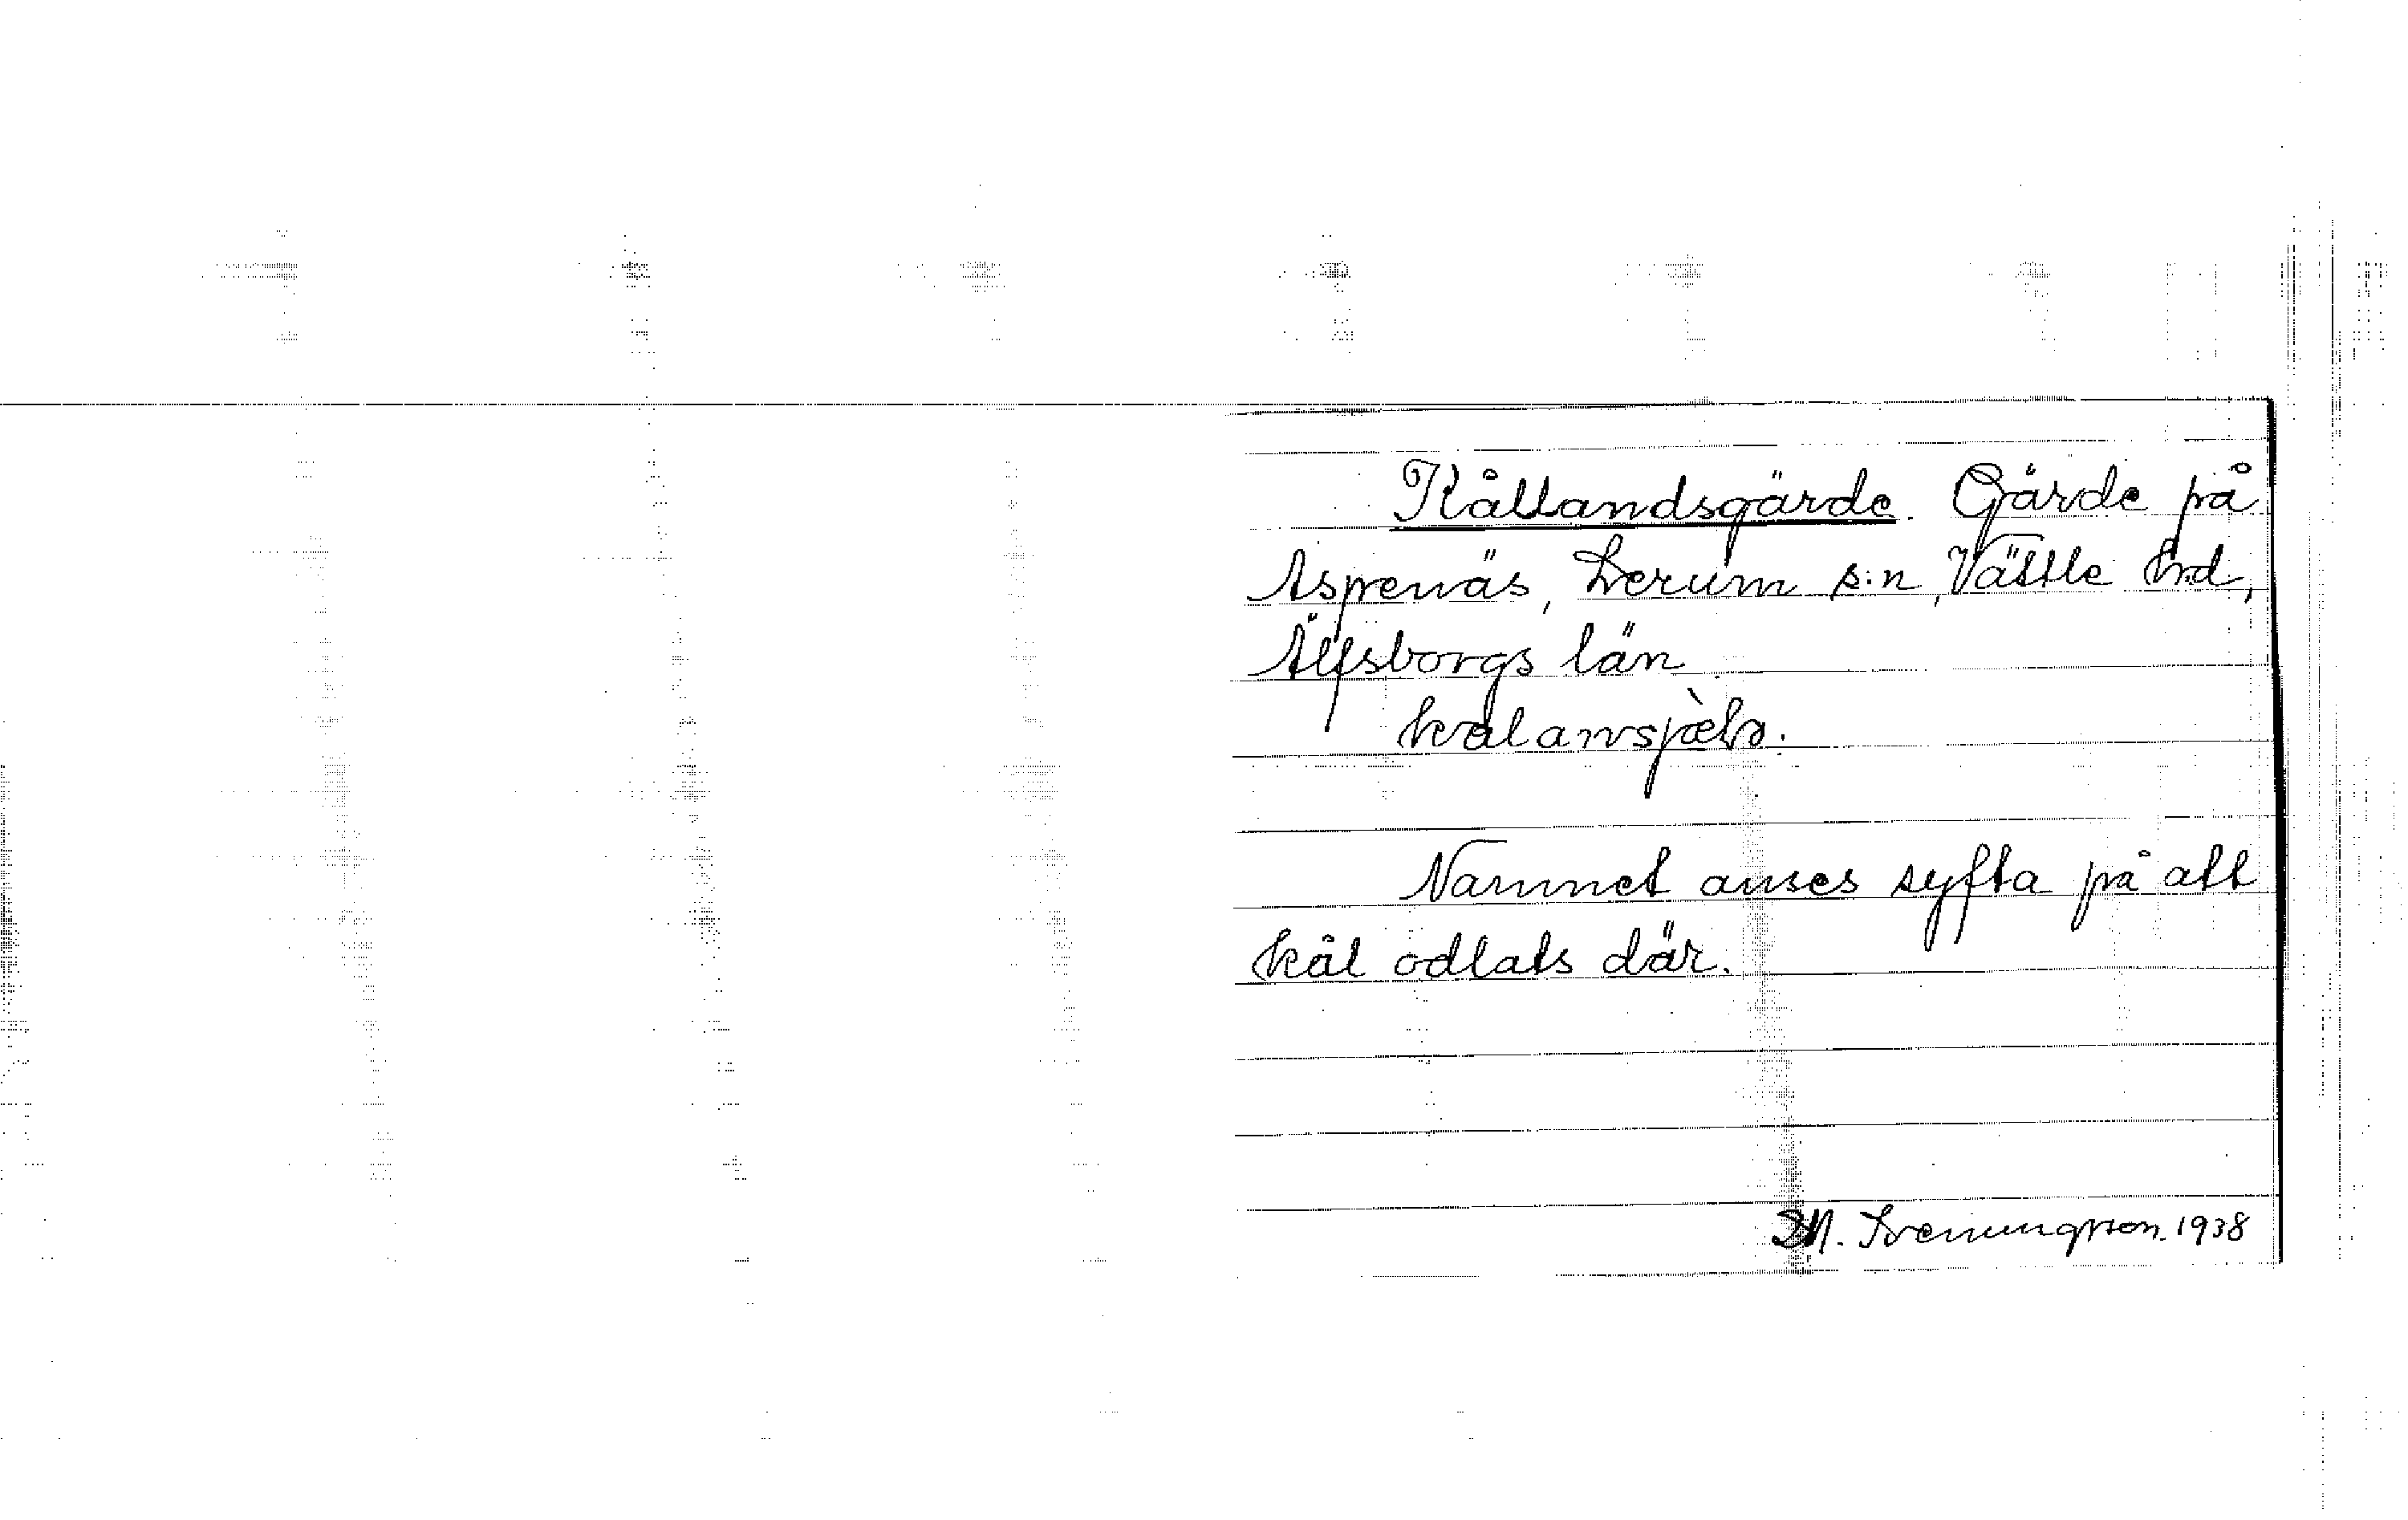 Kållandsgärde. Gärde på
Aspenäs, Lerum s:n, Vättle hd,
Älfsborgs län.
Namnet anses syfta på att
kål odlats där.
M. Svenungsson. 1938